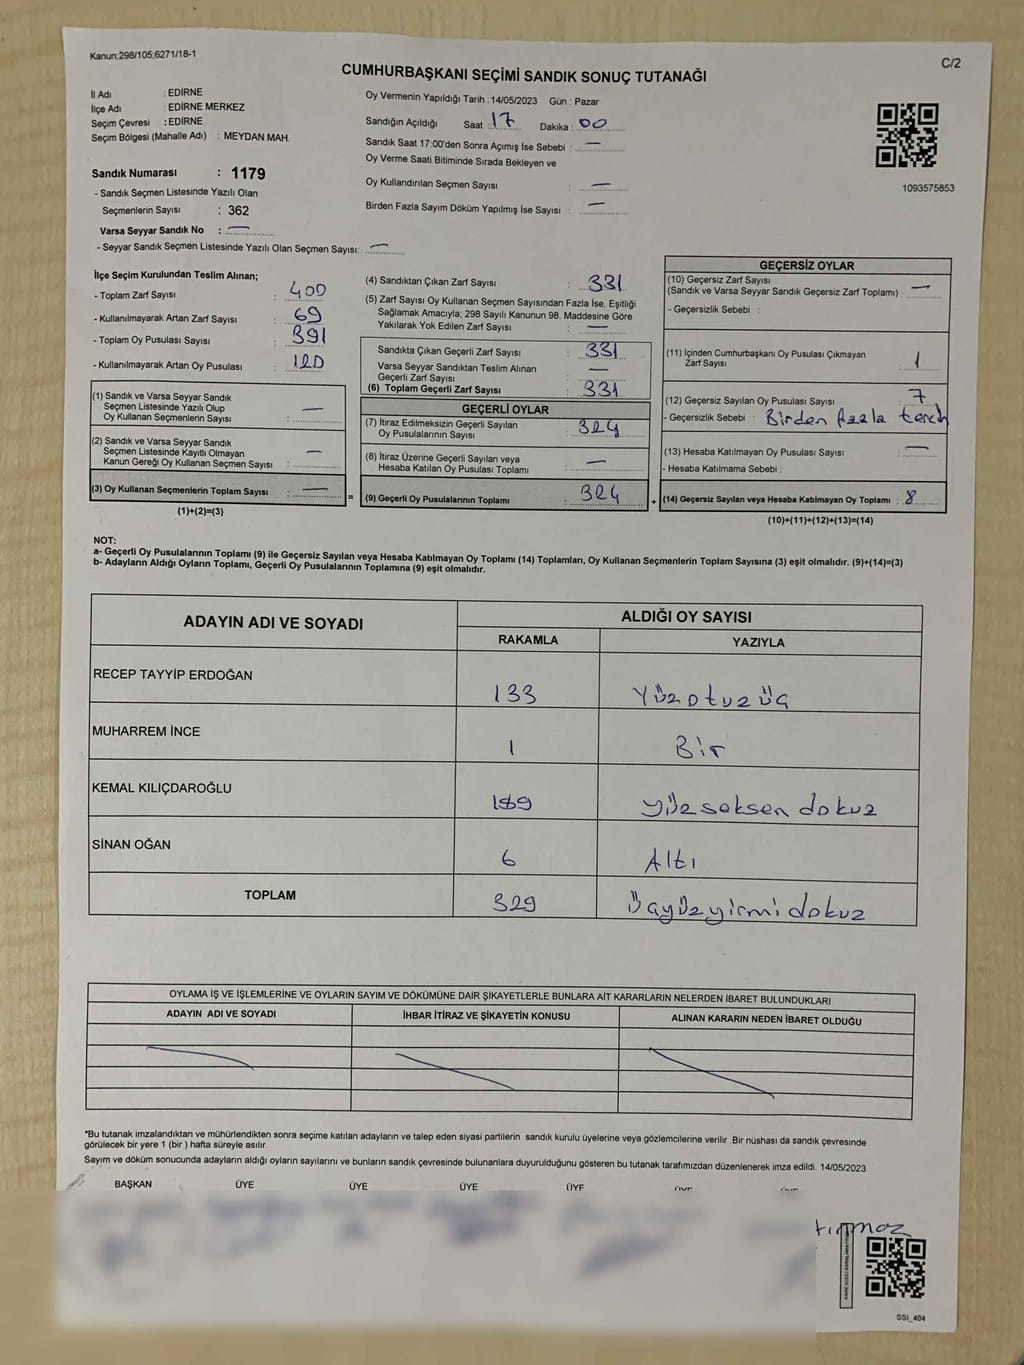 Kanun;298/105;6271/18-1
C/2
CUMHURBAŞKANI SEÇİMİ SANDIK SONUÇ TUTANAĞI
İl Adı : EDİRNE
İlçe Adı : EDİRNE MERKEZ
Seçim Çevresi : EDİRNE
Seçim Bölgesi (Mahalle Adı) : MEYDAN MAH.
Sandık Numarası : 1179
- Sandık Seçmen Listesinde Yazılı Olan
Seçmenlerin Sayısı : 362
Varsa Seyyar Sandık No : —
- Seyyar Sandık Seçmen Listesinde Yazılı Olan Seçmen Sayısı: —
Oy Vermenin Yapıldığı Tarih : 14/05/2023 Gün : Pazar
Sandığın Açıldığı Saat : 17 Dakika : 00
Sandık Saat 17:00'den Sonra Açımış İse Sebebi : —
Oy Verme Saati Bitiminde Sırada Bekleyen ve
Oy Kullandırılan Seçmen Sayısı : —
Birden Fazla Sayım Döküm Yapılmış İse Sayısı : —
1093575853
İlçe Seçim Kurulundan Teslim Alınan;
- Toplam Zarf Sayısı : 400
- Kullanılmayarak Artan Zarf Sayısı : 69
- Toplam Oy Pusulası Sayısı : 391
- Kullanılmayarak Artan Oy Pusulası : 120
(1) Sandık ve Varsa Seyyar Sandık
Seçmen Listesinde Yazılı Olup
Oy Kullanan Seçmenlerin Sayısı : —
(2) Sandık ve Varsa Seyyar Sandık
Seçmen Listesinde Kayıtlı Olmayan
Kanun Gereği Oy Kullanan Seçmen Sayısı : —
(3) Oy Kullanan Seçmenlerin Toplam Sayısı : —
(1)+(2)=(3)
=
(4) Sandıktan Çıkan Zarf Sayısı : 331
(5) Zarf Sayısı Oy Kullanan Seçmen Sayısından Fazla İse, Eşitliği
Sağlamak Amacıyla; 298 Sayılı Kanunun 98. Maddesine Göre
Yakılarak Yok Edilen Zarf Sayısı : —
Sandıkta Çıkan Geçerli Zarf Sayısı : 331
Varsa Seyyar Sandıktan Teslim Alınan
Geçerli Zarf Sayısı : —
(6) Toplam Geçerli Zarf Sayısı : 331
GEÇERLİ OYLAR
(7) İtiraz Edilmeksizin Geçerli Sayılan
Oy Pusulalarının Sayısı : 324
(8) İtiraz Üzerine Geçerli Sayılan veya
Hesaba Katılan Oy Pusulası Toplamı : —
(9) Geçerli Oy Pusulalarının Toplamı : 324
+
GEÇERSİZ OYLAR
(10) Geçersiz Zarf Sayısı
(Sandık ve Varsa Seyyar Sandık Geçersiz Zarf Toplamı) : —
- Geçersizlik Sebebi :
(11) İçinden Cumhurbaşkanı Oy Pusulası Çıkmayan
Zarf Sayısı : 1
(12) Geçersiz Sayılan Oy Pusulası Sayısı : 7
- Geçersizlik Sebebi : Birden fazla tercih
(13) Hesaba Katılmayan Oy Pusulası Sayısı : —
- Hesaba Katılmama Sebebi :
(14) Geçersiz Sayılan veya Hesaba Katılmayan Oy Toplamı : 8
(10)+(11)+(12)+(13)=(14)
NOT:
a- Geçerli Oy Pusulalarının Toplamı (9) ile Geçersiz Sayılan veya Hesaba Katılmayan Oy Toplamı (14) Toplamları, Oy Kullanan Seçmenlerin Toplam Sayısına (3) eşit olmalıdır. (9)+(14)=(3)
b- Adayların Aldığı Oyların Toplamı, Geçerli Oy Pusulalarının Toplamına (9) eşit olmalıdır.
ADAYIN ADI VE SOYADI
ALDIĞI OY SAYISI
RAKAMLA YAZIYLA
RECEP TAYYİP ERDOĞAN 133 Yüzotuzüç
MUHARREM İNCE 1 Bir
KEMAL KILIÇDAROĞLU 189 yüzseksen dokuz
SİNAN OĞAN 6 Altı
TOPLAM 329 Üçyüzyirmi dokuz
OYLAMA İŞ VE İŞLEMLERİNE VE OYLARIN SAYIM VE DÖKÜMÜNE DAİR ŞİKAYETLERLE BUNLARA AİT KARARLARIN NELERDEN İBARET BULUNDUKLARI
ADAYIN ADI VE SOYADI İHBAR İTİRAZ VE ŞİKAYETİN KONUSU ALINAN KARARIN NEDEN İBARET OLDUĞU
*Bu tutanak imzalandıktan ve mühürlendikten sonra seçime katılan adayların ve talep eden siyasi partilerin sandık kurulu üyelerine veya gözlemcilerine verilir. Bir nüshası da sandık çevresinde
görülecek bir yere 1 (bir ) hafta süreyle asılır.
Sayım ve döküm sonucunda adayların aldığı oyların sayılarını ve bunların sandık çevresinde bulunanlara duyurulduğunu gösteren bu tutanak tarafımızdan düzenlenerek imza edildi. 14/05/2023
BAŞKAN ÜYE ÜYE ÜYE ÜYE
SSI_404